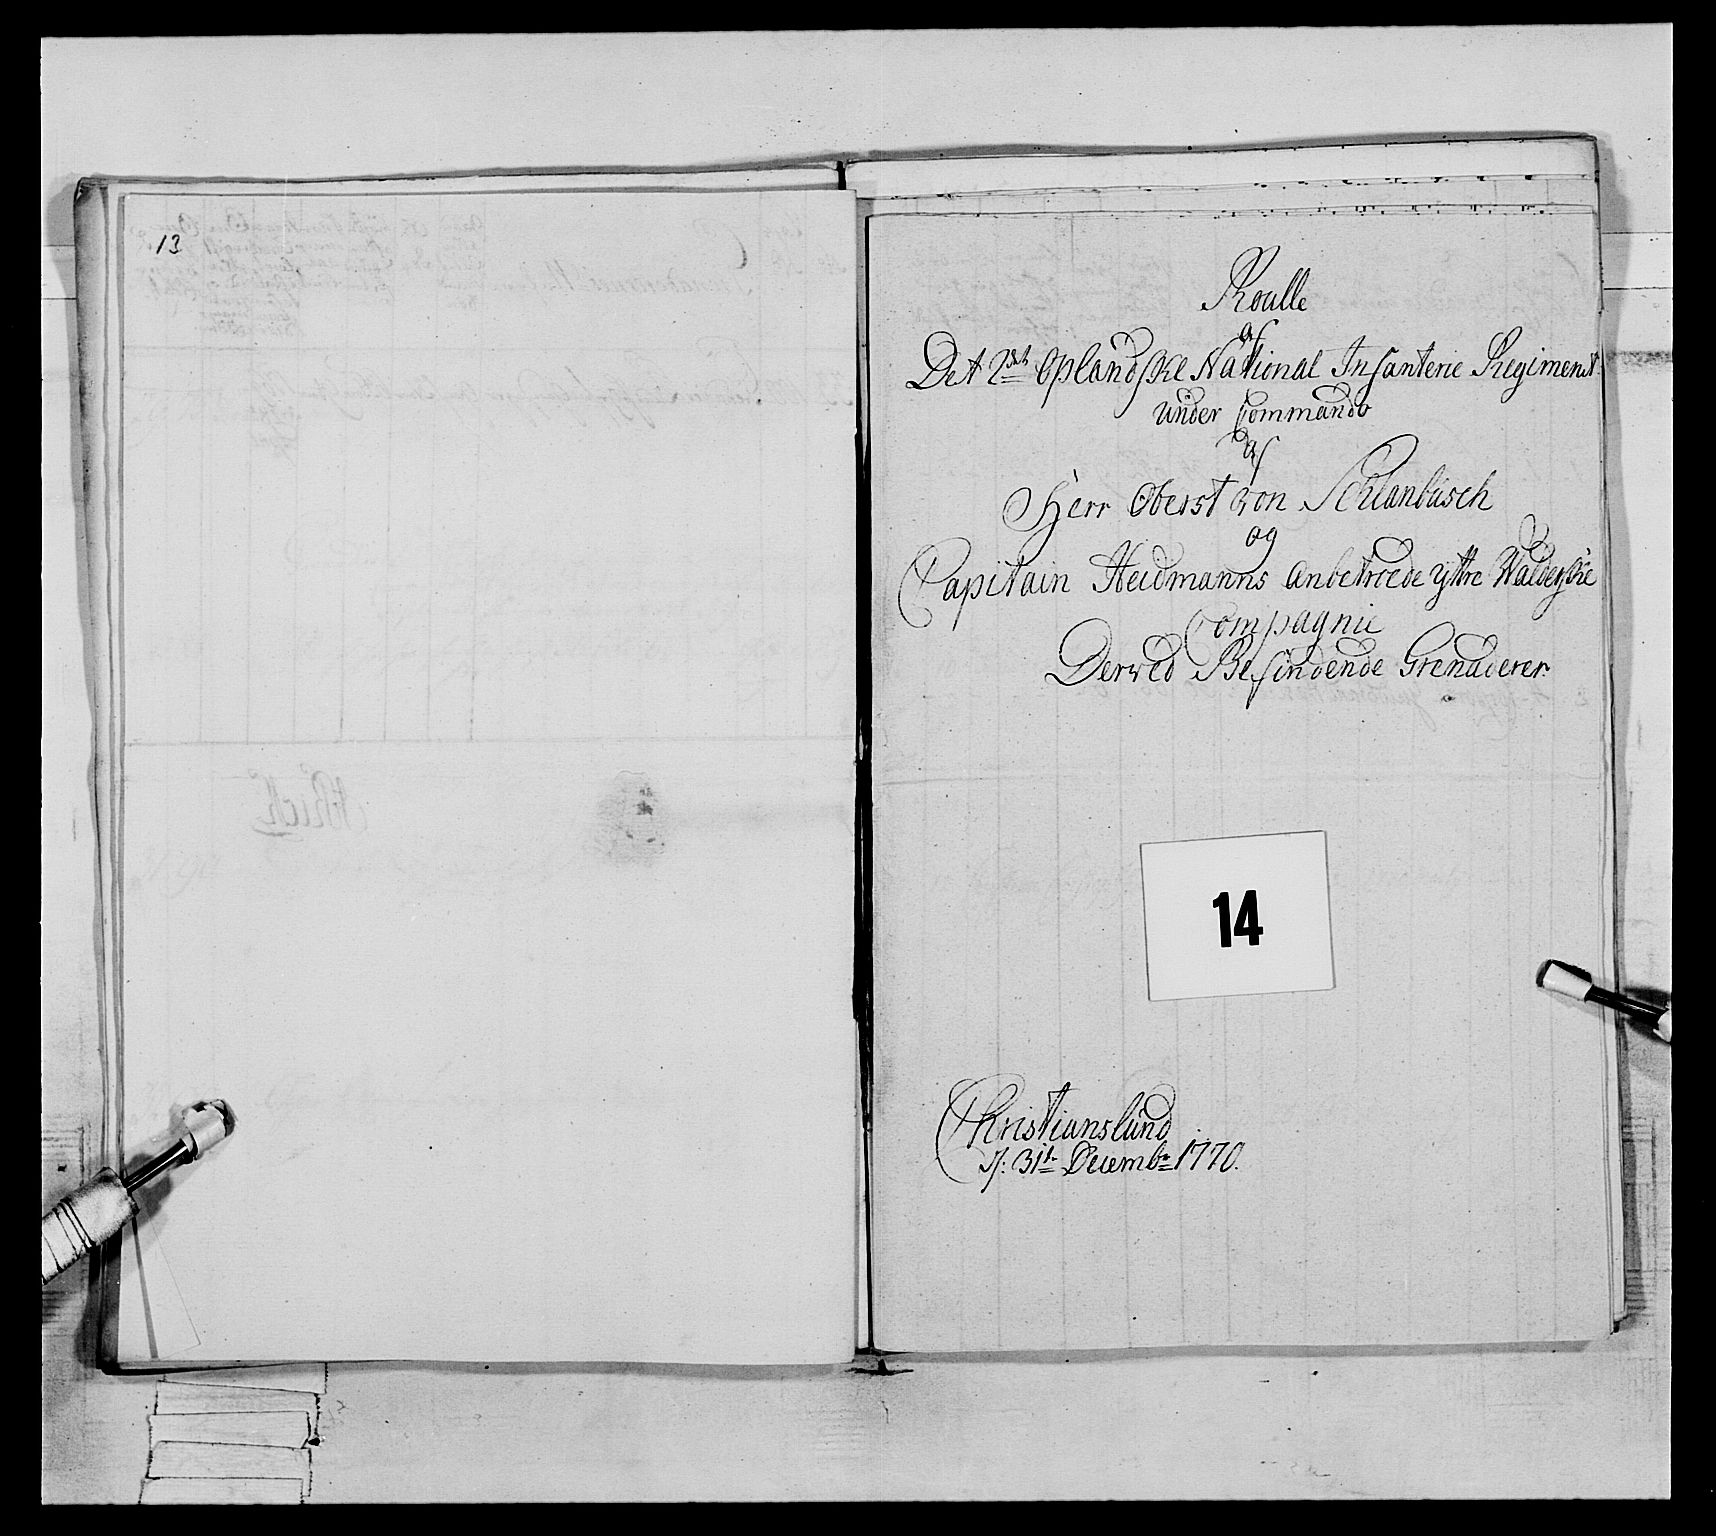 13
Roulle
af
Det 2det Oplandske National Infanterie Regiment
under Commando
af
Herr Oberst von Schlanbusch
og
Capitain Heidmanns anbetroede yttre Walderske
Compagnie
Derved Befindende Grenaderer.
14
Christianslund
d: 31te Decembr 1770.